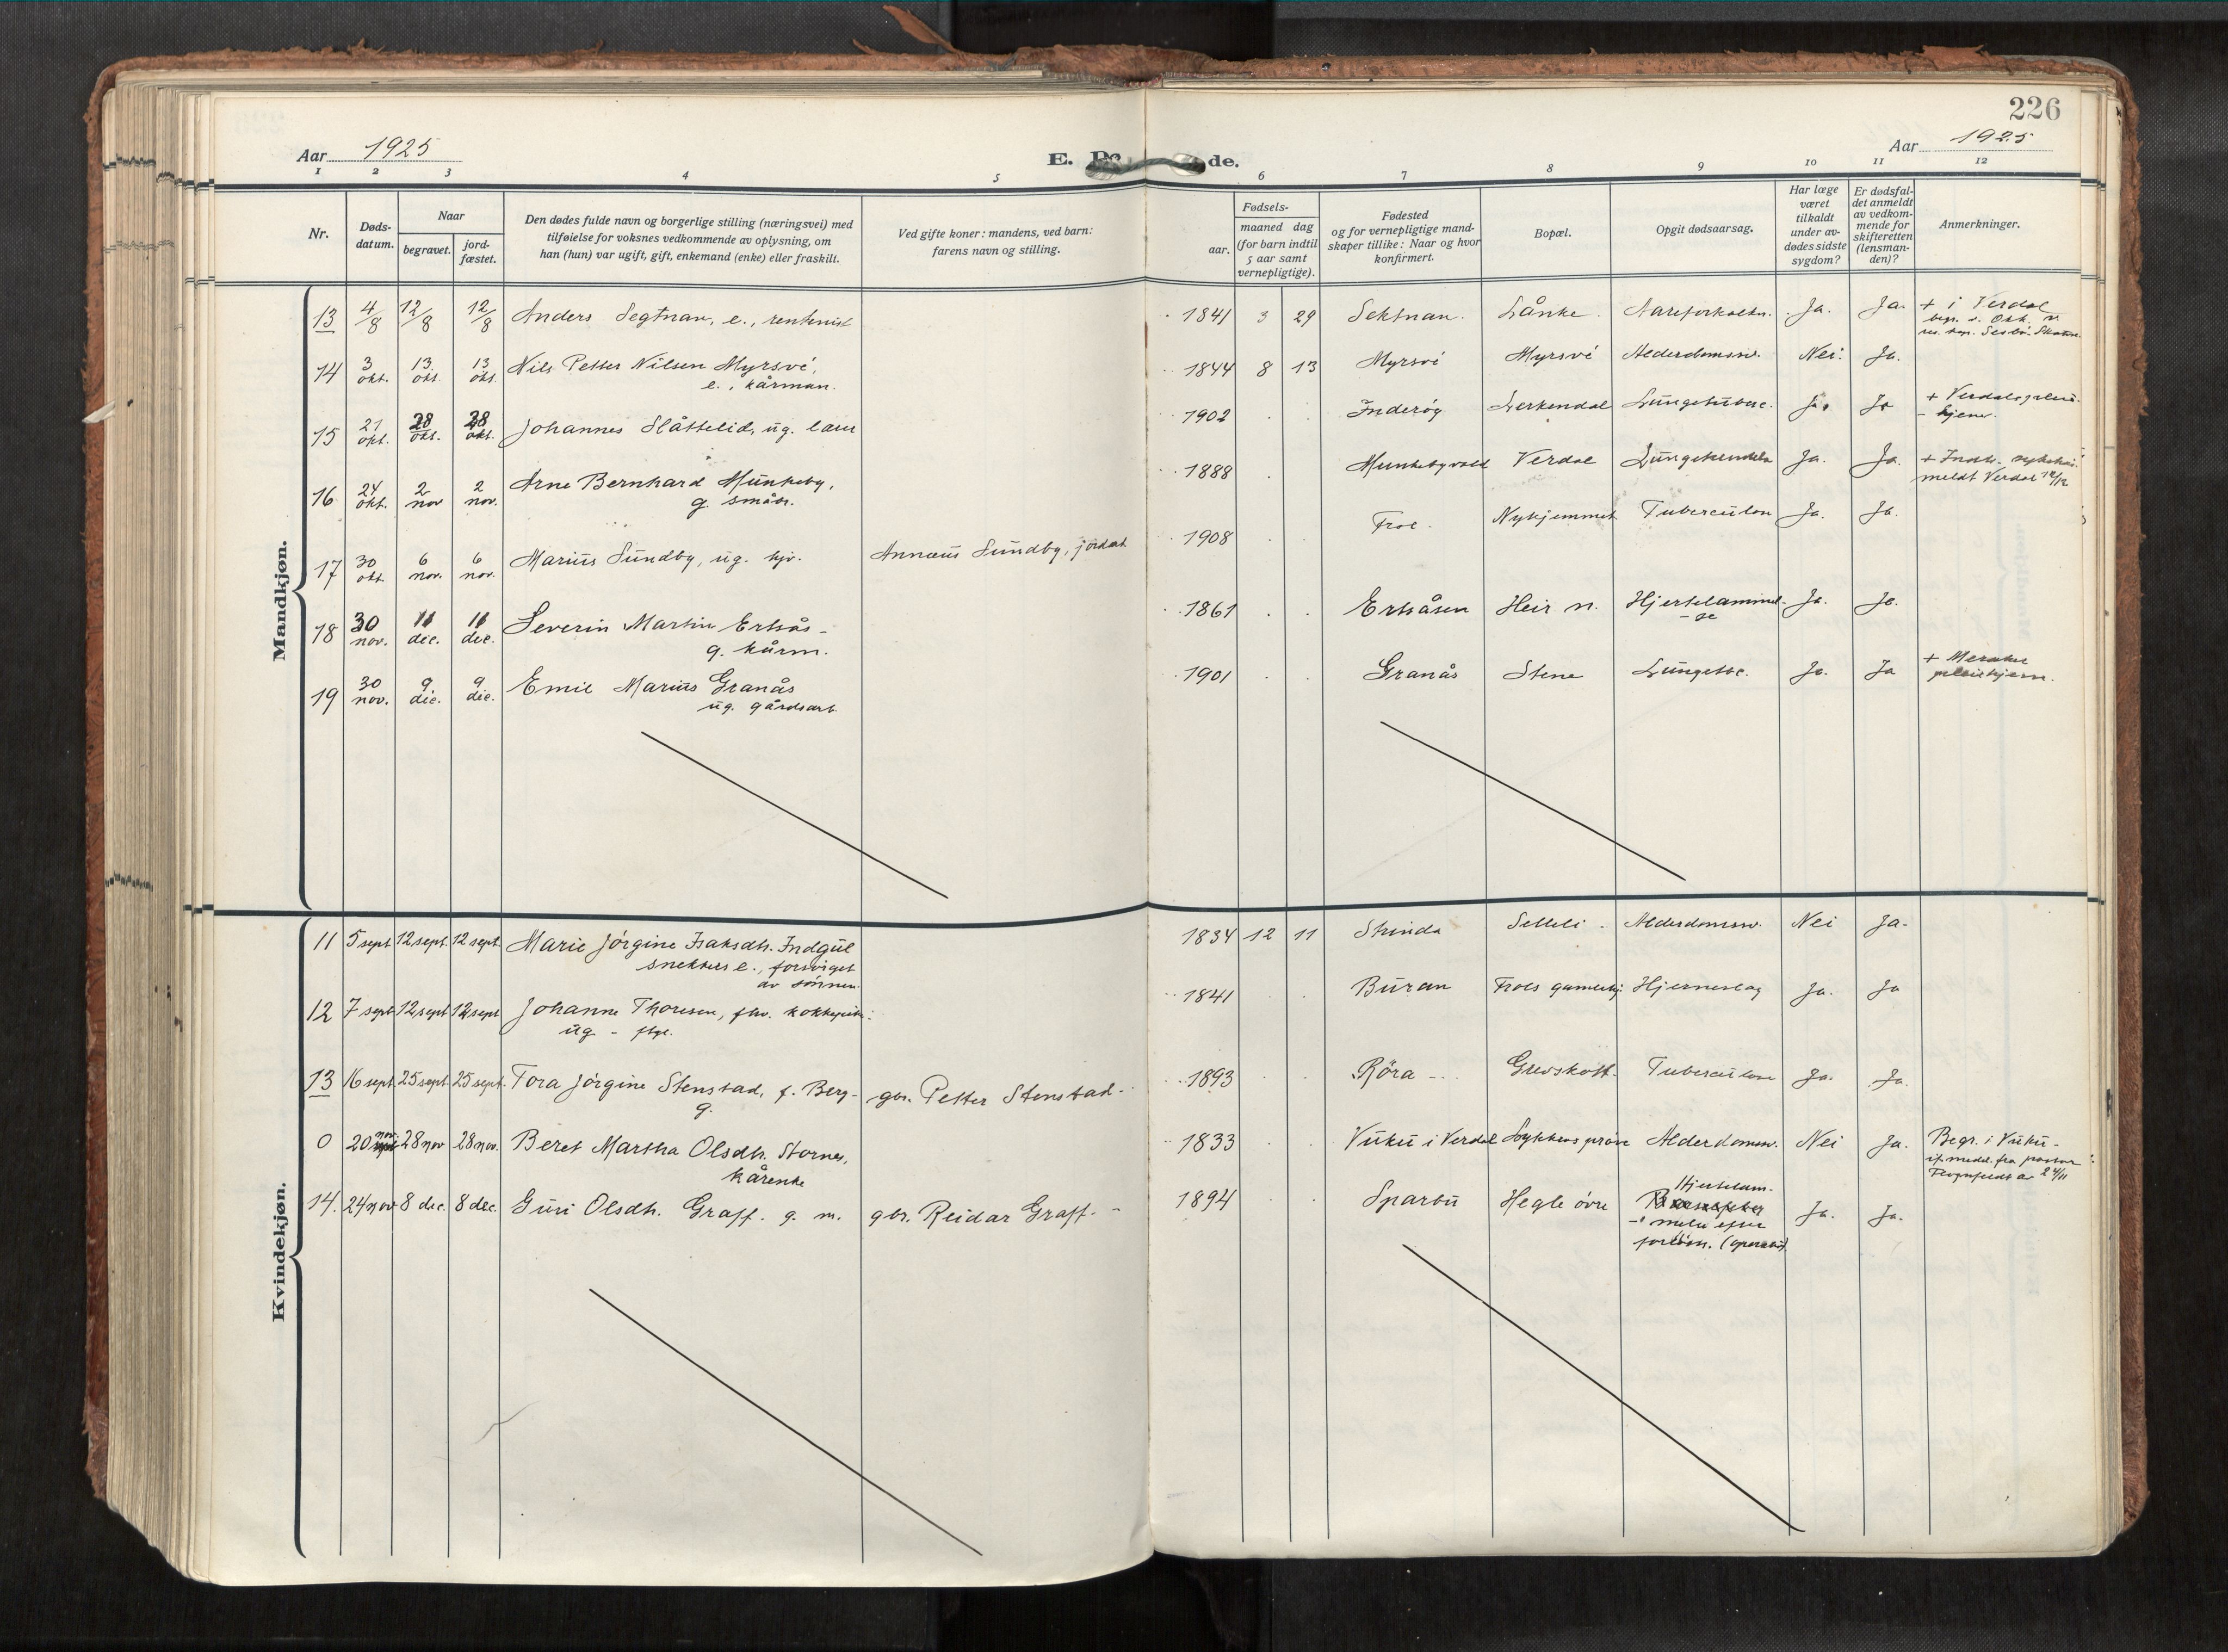 226
Aar 1925
E. Dø de.
Aar 1925
1 2 3 4 5 6 7 8 9 10 11 12
Nr.
Døds-datum.
Naar
begravet.
jord-fæstet.
Den dødes fulde navn og borgerlige stilling (næringsvei) med
tilføielse for voksnes vedkommende av oplysning, om
han (hun) var ugift, gift, enkemand (enke) eller fraskilt.
Ved gifte koner: mandens, ved barn:
farens navn og stilling.
Fødsels-
aar.
maaned dag
(for barn indtil
5 aar samt
vernepligtige).
Fødested
og for vernepligtige mand-
skaper tillike: Naar og hvor
konfirmert.
Bopæl.
Opgit dødsaarsag.
Har læge
været
tilkaldt
under av-
dødes sidste
sygdom?
Er dødsfal-
det anmeldt
av vedkom-
mende for
skifteretten
(lensman-
den)?
Anmerkninger.
Mandkjøn.
13 4/8 12/8 12/8 Anders Segtnan, e., rentenist 1841 3 29 Sektnan. Lånke. Aareforkalkn. Ja. Ja. + i Verdal
14 3 okt. 13 okt. 13 okt. Nils Petter Nilsen Myrsvé, 1844 8 13 Myrsvé Myrsvé Alderdomssv. Nei. Ja.
e., kårman.
15 21 okt. 28 okt. 28 okt. Johannes Slåttelid, ug. 1902 Inderøy Lerkendal Ja. Ja + Verdals
- hjem.
16 24 okt. 2 nov 2 nov. Arne Bernhard Munkeby, 1888 Munkebyvald Verdal Ja. Ja. + Indh. sykehus.
g. småbr. meldt Verdal
17 30 okt. 6 nov. 6 nov. Marius Sundby, ug. Annæus Sundby, 1908 Frol. Nyhjemmet Tuberculon Ja. Ja.
18 30 nov. 11 dec. 11 dec. Severin Martin Ertsås - 1861 Ertsåsen Heir n. Hjertelammel- Ja. Ja.
g. kårm. - se
19 30 nov. 9 dec. 9 dec. Emil Marius Granås 1901 Granås Stene Lungetbc. Ja. Ja + Meraker
ug. gårdsarb. pleiehjem.
Kvindekjøn.
11 5 sept 12 sept. 12 sept. Marie Jörgine Isaksdtr. Indgül 1834 12 11 Strinda Selleli. Alderdomssv. Nei Ja.
snekkers e., forsörget
av sönnen.
12 7 sept 12 sept 12 sept Johanne Thoresen, fhv. 1841 Buran Frols gamlehj. Hjerneslag Ja. Ja
ug -
13 16 sept 25 sept. 25 sept. Tora Jörgine Stenstad, f. Berg - gbr. Petter Stenstad. - 1893 Röra - Grevskott. Tuberculose Ja. Ja.
g.
0 20 nov 28 nov 28 nov. Beret Martha Olsdtr. Stornes, 1833 Vuku i Verdal Alderdomssv. Nei Ja. Begr. i Vuku -
kårenke if. medd. fra pastor
24/11
14. 24 nov 8 dec. 8 dec. Guri Olsdtr. Graff. g. m. gbr. Reidar Graff. - 1894 Sparbu Hegle övre Hjertelam- Ja. Ja.
melse efter